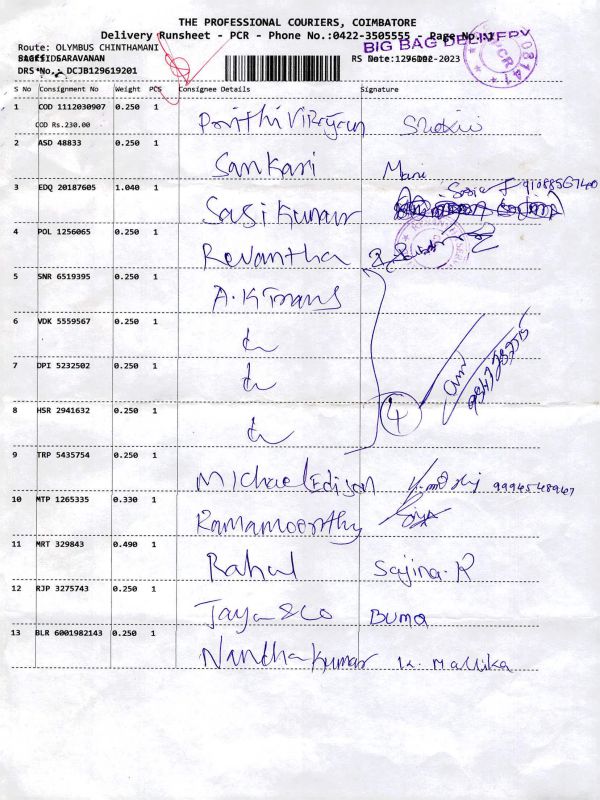 THE PROFESSIONAL COURIERS, COIMBATORE
Delivery Runsheet - PCR - Phone No.:0422-3505555 - Page No.:1
BIG BAG DELIVERY
Route: OLYMPUS CHINTHAMANI
SARAVANAN
DRS No.: DCJB129619201
S No Consignment No Weight PCS Consignee Details Signature
1 COD 1112030907 0.250 1
COD Rs.230.00
2 ASD 48833 0.250 1 Sankari Mani
3 EDQ 20187605 1.040 1 Sasi Kumar
4 POL 1256065 0.250 1 Revantha
5 SNR 6519395 0.250 1
6 VDK 5559567 0.250 1
7 DPI 5232502 0.250 1
8 HSR 2941632 0.250 1 4
9 TRP 5435754 0.250 1 Michael Edison
10 MTP 1265335 0.330 1 Ramamoorthy
11 MRT 329843 0.490 1 Rahul Sajina.R
12 RJP 3275743 0.250 1 Jaya & Co Buma
13 BLR 6001982143 0.250 1 Nandhakumar K. Mallika